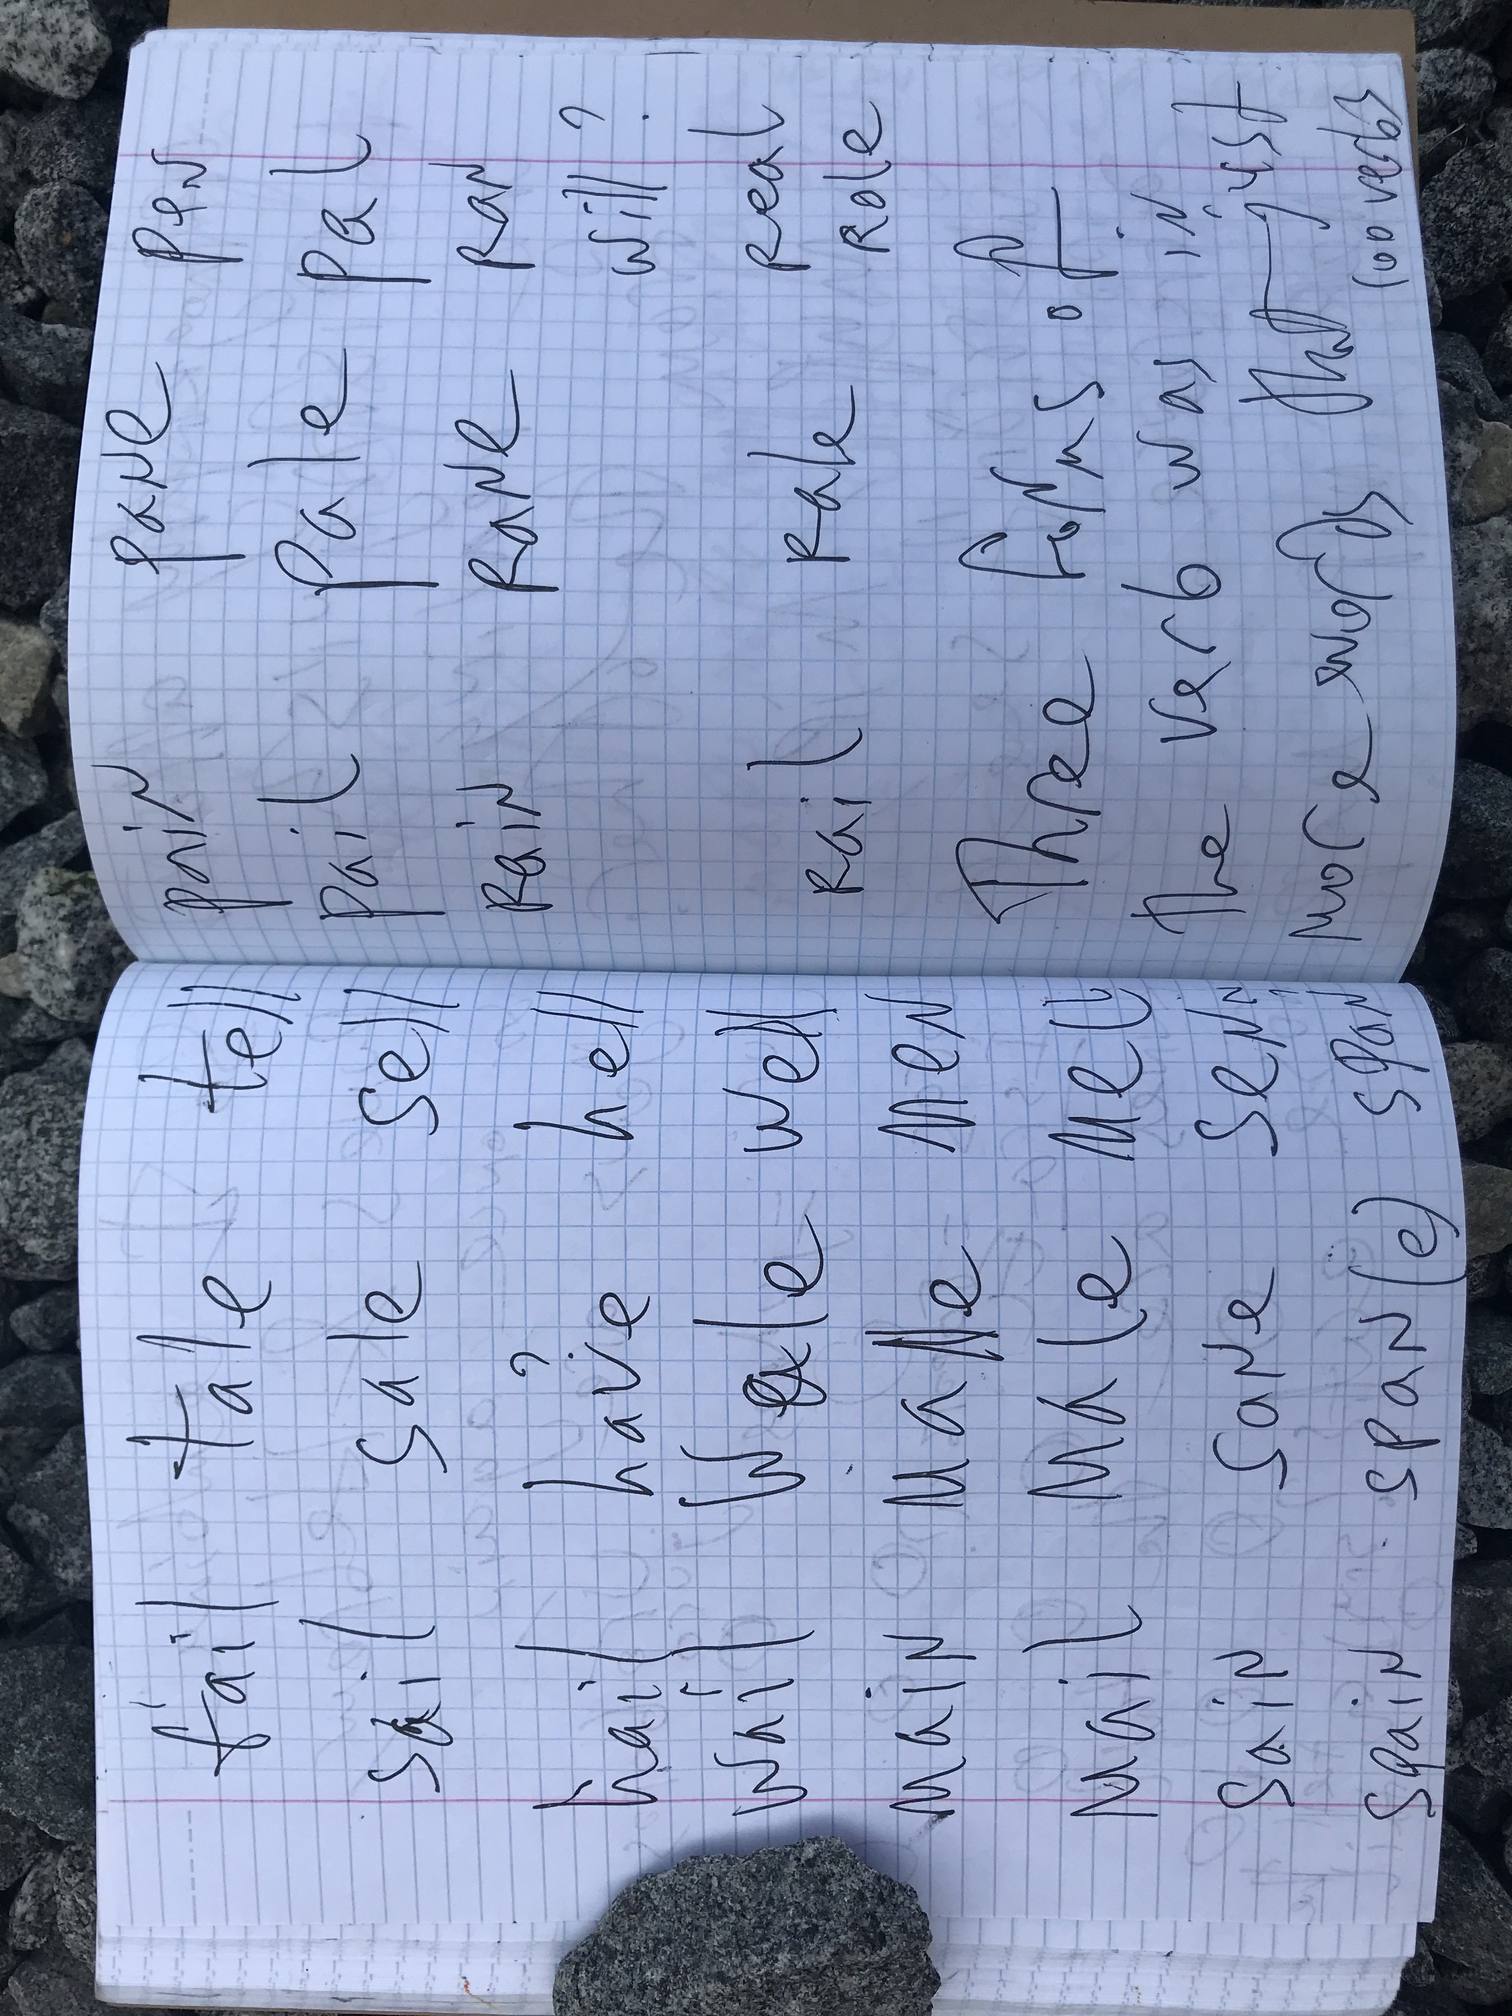 fail tale tell
sail sale sell
hail have? hell
wail Wale well
main mane men
mail male mell
sain sane senn
spain span(e) span
pain pane pen
pail pale pal
rain rane ran
will?
rail rale real
role
Three forms of
the verb was in
more words than just
100 verbs